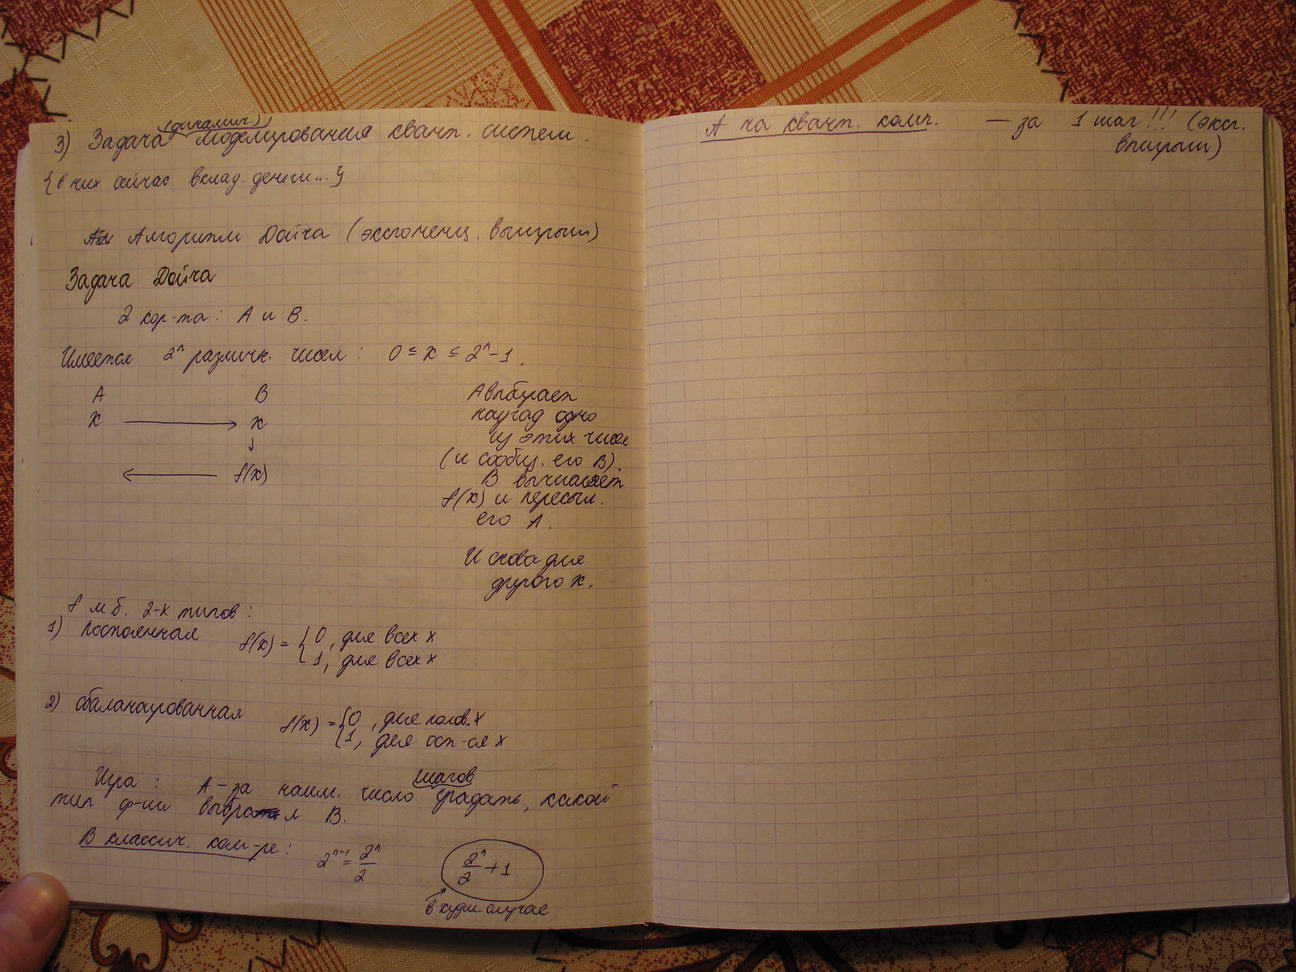 (динамич.)
3) Задача моделирования квант. систем.
{в них сейчас вклад. деньги...}
Алгоритм Дойча (экспоненц. выигрыш)
Задача Дойча
2 кор-та: А и В.
Имеется 2ⁿ различн. чисел: 0 ≤ x ≤ 2ⁿ-1.
А В
x ⟶ x
↓
⟵ f(x)
А выбирает
наугад одно
из этих чисел
(и сообщ. его В).
В вычисляет
f(x) и пересыл.
его А.
И снова для
другого x.
f м.б. 2-х типов:
1) постоянная f(x) = { 0, для всех x
1, для всех x
2) сбалансированная f(x) = { 0, для полов. x
1, для ост-ся x
шагов
Игра: А – за наим. число угадать, какой
тип ф-ии выбрал В.
В классич. комп-ре: 2ⁿ⁻¹ = 2ⁿ/2 2ⁿ/2 + 1
в худш случае
А на квант. комп. — за 1 шаг!!! (эксп.
выигрыш)